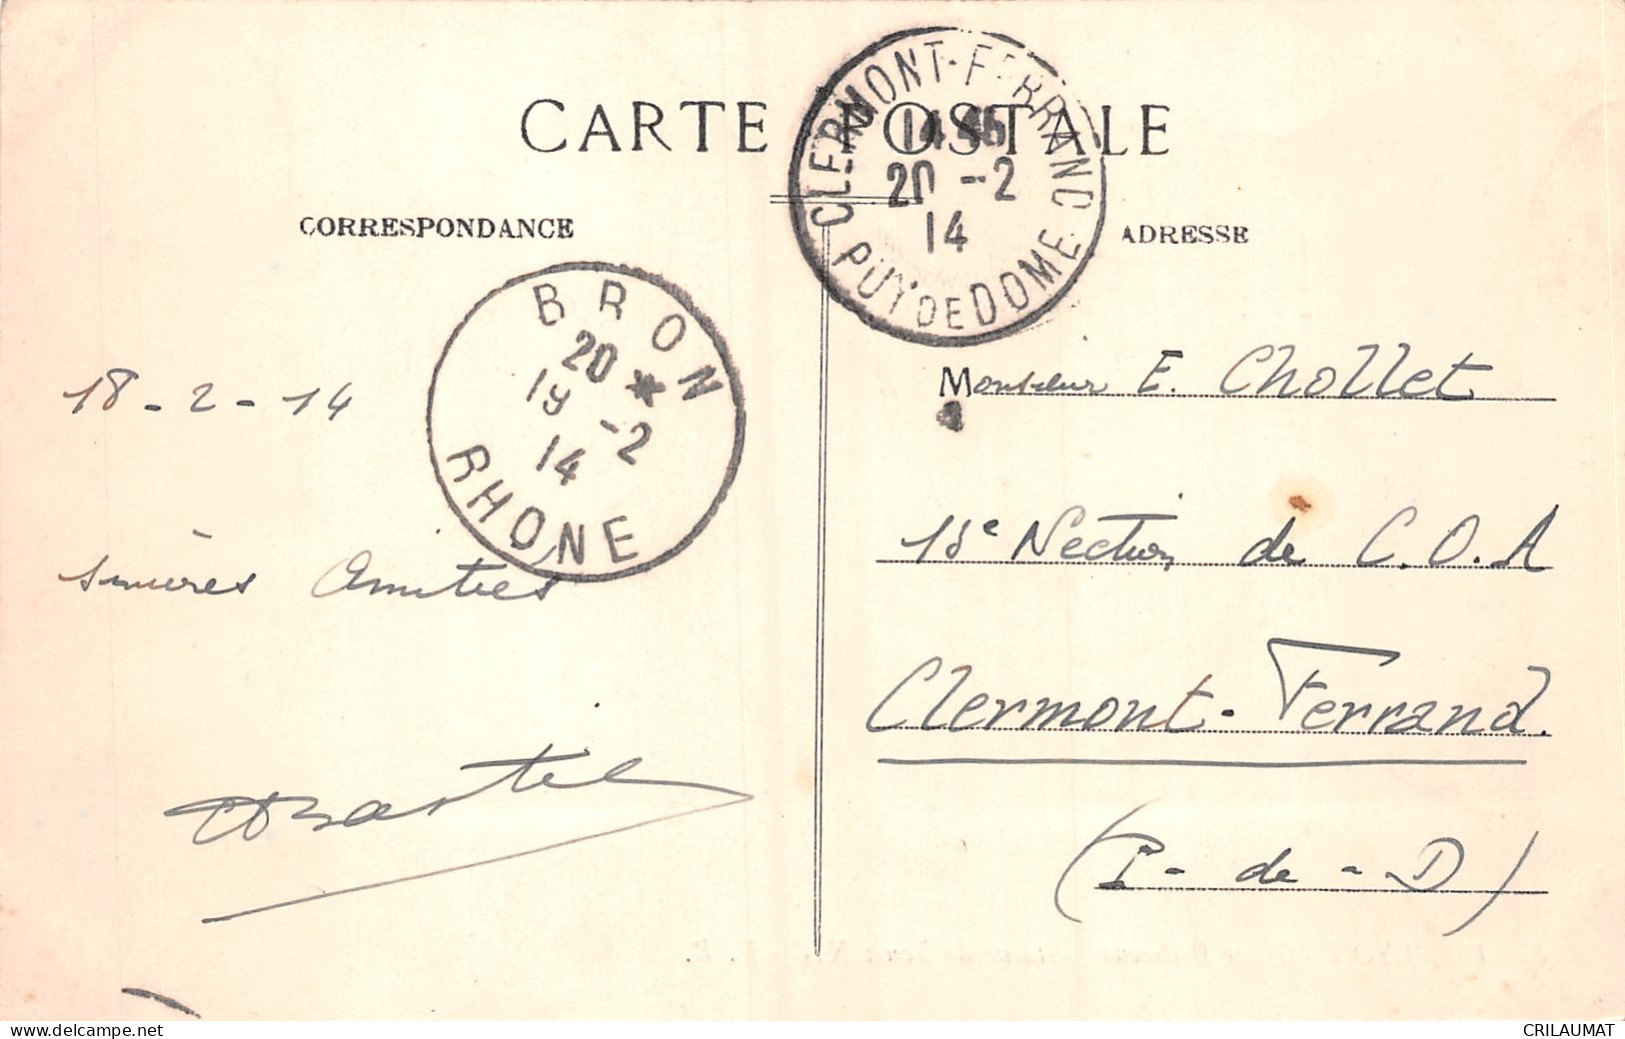 CARTE POSTALE
CORRESPONDANCE
ADRESSE
CLERMONT-FERRAND
14 45
20 -2
14
PUY DE DOME
BRON
20 *
19 -2
14
RHONE
18-2-14
Sincères Amitiés
Monsieur E. Chollet
18e Section de C.O.A
Clermont-Ferrand.
(P-de-D)
CRILAUMAT